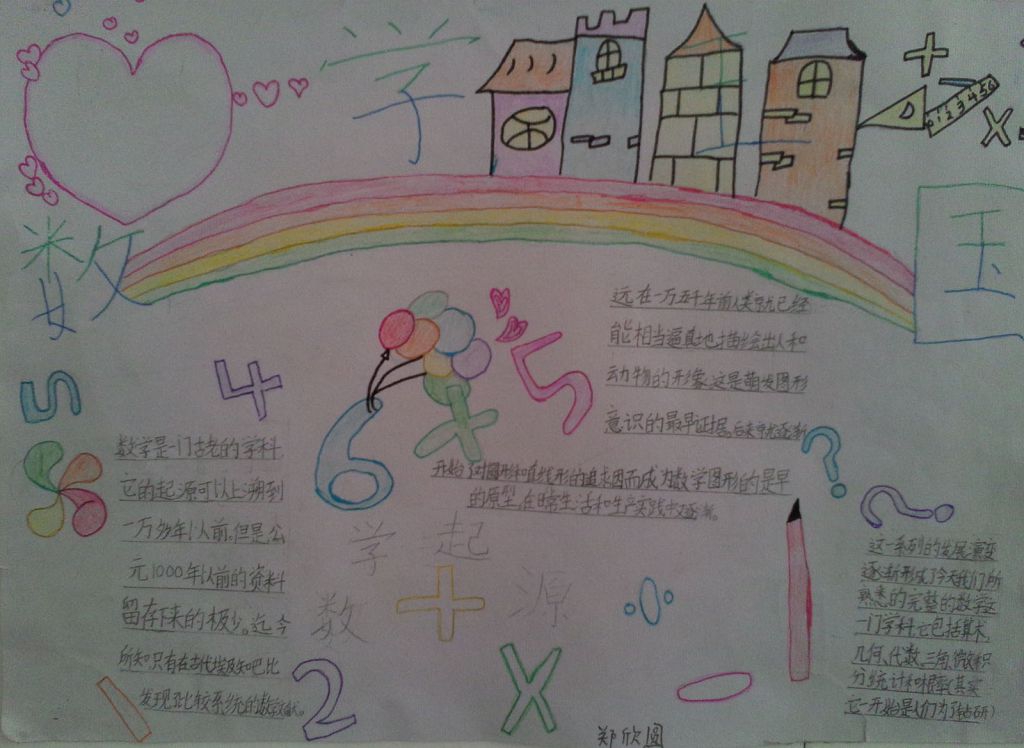 数学王国
5
4
6
5
0 1 2 3 4 5 6
+
×
数学是一门古老的学科,
它的起源可以上溯到
一万多年以前。但是,公
元1000年以前的资料
留存下来的极少。迄今
所知,只有在古代埃及和巴比
发现了比较系统的数学文献。
远在一万五千年前人类就已经
能相当逼真地描绘出人和
动物的形象。这是萌发图形
意识的最早证据。后来就逐渐
开始了对圆形和直线形的追求,因而成为数学图形的最早
的原型。在日常生活和生产实践中又逐渐
?
?
数学起源
+
÷
×
2
这一系列的发展演变
逐渐形成了今天我们所
熟悉的完整的数学这
一门学科,它包括算术,
几何,代数,三角,微积
分,统计和概率,其实
它一开始是人们为了钻研
郑欣圆